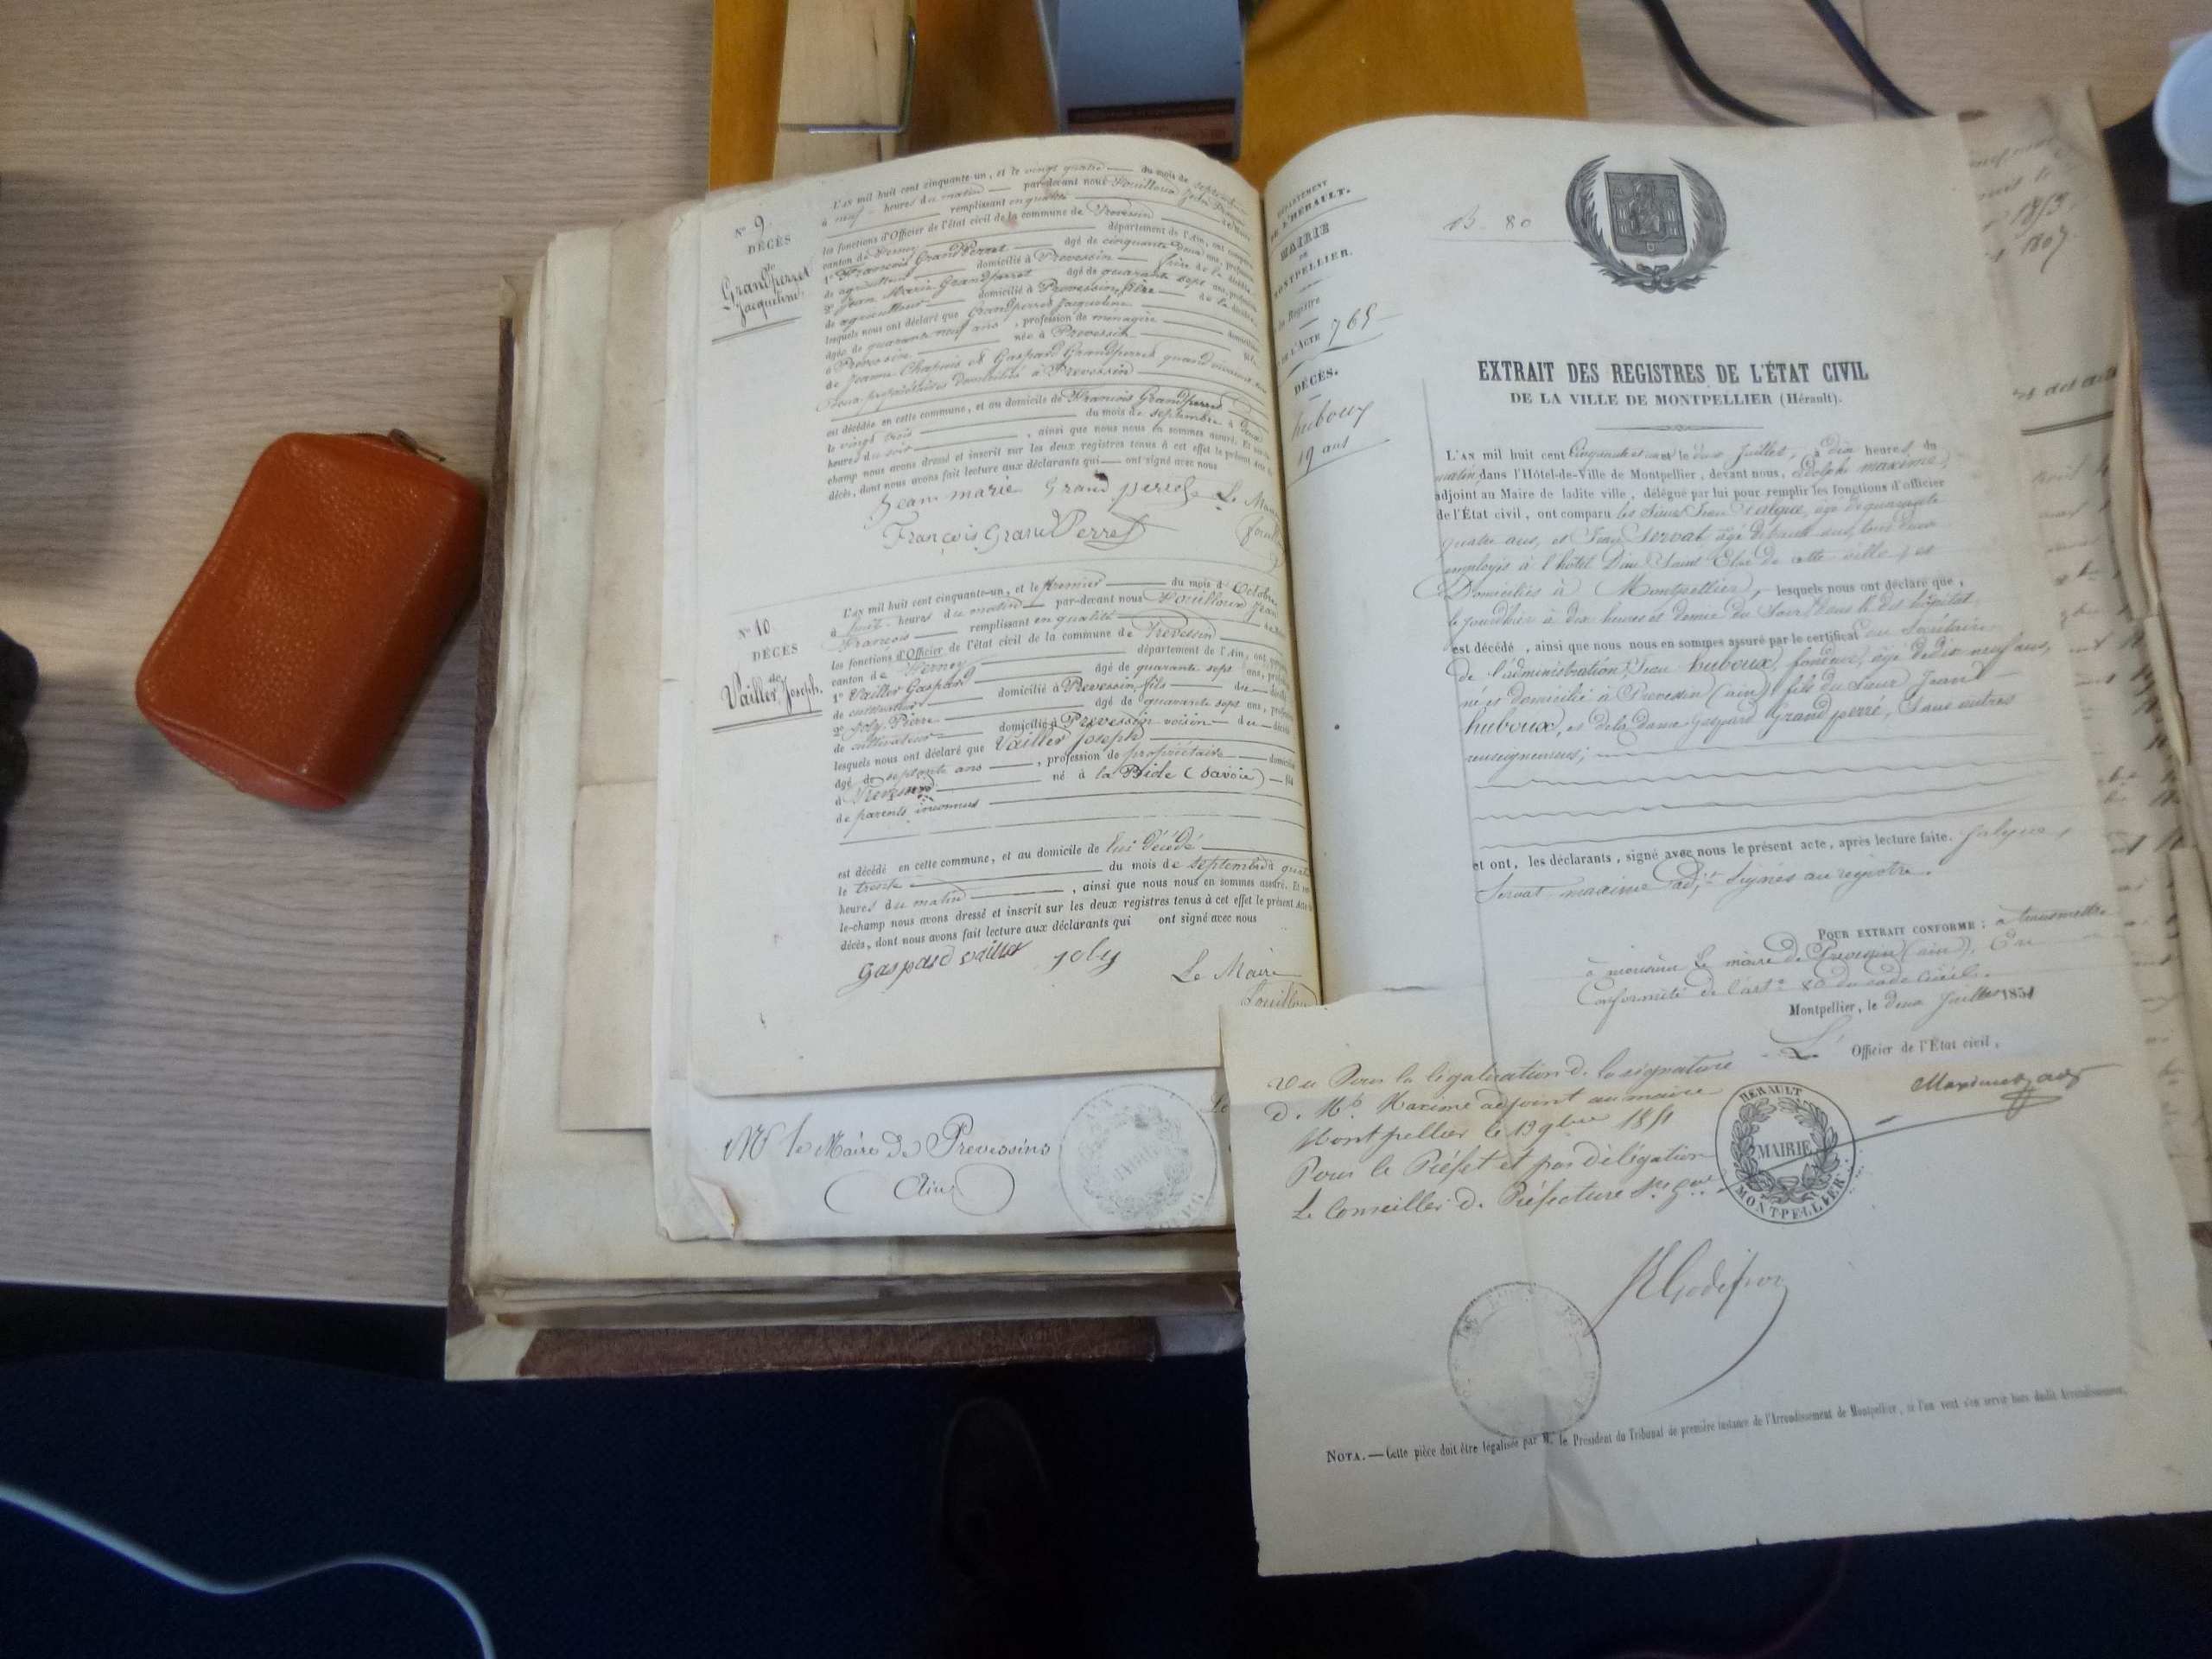 N° 9
DÉCÈS
de
Grandperret
Jacqueline
L'AN mil huit cent cinquante-un, et le vingt quatre du mois de septembre
à neuf heures du matin par-devant nous Fouilloux
remplissant en qualité
les fonctions d'Officier de l'état civil de la commune de Prevessin
canton de Ferney département de l'Ain, ont comparu
1° François GrandPerret âgé de cinquante deux ans, profession
de agriculteur domicilié à Prevessin frère de la
2° Jean Marie Grandperret âgé de quarante sept ans, profession
de agriculteur domicilié à Prevessin, frère de la
lesquels nous ont déclaré que Grandperret Jacqueline
âgée de quarante neuf ans, profession de ménagère
à Prevessin née à Prevessin
de Jeanne Chapuis et Gaspard Grandperret quand vivaient
propriétaires domiciliés à Prevessin
est décédée en cette commune, et au domicile de François Grandperret
le vingt trois du mois de septembre à
heures du soir, ainsi que nous nous en sommes assuré. Et sur-le-
champ nous avons dressé et inscrit sur les deux registres tenus à cet effet le présent acte de
décès, dont nous avons fait lecture aux déclarants qui ont signé avec nous
Jean marie Grand perret Le Maire
François GrandPerret
N° 10
DÉCÈS
de
Vaillet Joseph.
L'AN mil huit cent cinquante-un, et le premier du mois d'Octobre
à huit heures du matin par-devant nous Fouilloux Jean
François remplissant en qualité
les fonctions d'Officier de l'état civil de la commune de Prevessin
canton de Ferney département de l'Ain, ont
1° Vaillet Gaspard âgé de quarante sept ans,
de cultivateur domicilié à Prevessin, fils du
2° Joly Pierre âgé de quarante sept ans,
de cultivateur domicilié à Prevessin voisin du décédé
lesquels nous ont déclaré que Vaillet Joseph
âgé de septante ans, profession de propriétaire
à Prevessin né à la (Savoie) fils
de parents inconnus
est décédé en cette commune, et au domicile de lui décédé
le trente du mois de septembre à quatre
heures du matin, ainsi que nous nous en sommes assuré. Et sur-
le-champ nous avons dressé et inscrit sur les deux registres tenus à cet effet le présent acte de
décès, dont nous avons fait lecture aux déclarants qui ont signé avec nous
Gaspard vaillet joly Le Maire
Fouilloux
Mr le Maire de Prevessins
Ain
DÉPARTEMENT
DE L'HÉRAULT.
MAIRIE
DE
MONTPELLIER.
Registre
DE L'ACTE 765
DÉCÈS.
huboux
19 ans
B. 80
EXTRAIT DES REGISTRES DE L'ÉTAT CIVIL
DE LA VILLE DE MONTPELLIER (Hérault).
L'AN mil huit cent Cinquante et un et le deux Juillet, à dix heures du
matin, dans l'Hôtel-de-Ville de Montpellier, devant nous, Adolphe maxime,
adjoint au Maire de ladite ville, délégué par lui pour remplir les fonctions d'officier
de l'État civil, ont comparu les sieurs Jean âgé de quarante
quatre ans, et Jean Servat âgé de ans, tous deux
employés à l'hôtel Dieu Saint Eloi de cette ville, et
Domiciliés à Montpellier, lesquels nous ont déclaré que,
le jour d'hier à dix heures et demie du Soir, dans le dit hôpital
est décédé, ainsi que nous nous en sommes assuré par le certificat du Secrétaire
de l'administration, Jean huboux, fondeur, âgé de dix neuf ans,
né et domicilié à Prevessin (ain) fils du Sieur Jean
huboux, et de la dame Gaspard Grand perre, Sans autres
renseignemens;
et ont, les déclarants, signé avec nous le présent acte, après lecture faite.
Servat maxime adjt Signés au registre.
POUR EXTRAIT CONFORME : à transmettre
à monsieur le maire de Prevessin (ain), En
Conformité de l'art. 80 du code Civil.
Montpellier, le deux Juillet 1851
L' Officier de l'État civil,
Maxime adjt
Vu Pour la légalisation de la signature
de Mr. Maxime adjoint au maire
Montpellier le 19 9bre 1851
Pour le Préfet et par délégation
Le Conseiller de Préfecture Sre Gal
HÉRAULT
MAIRIE
MONTPELLIER
Godefroy
NOTA. — Cette pièce doit être légalisée par M. le Président du Tribunal de première instance de l'Arrondissement de Montpellier, si l'on veut s'en servir hors dudit Arrondissement.
1813
1807